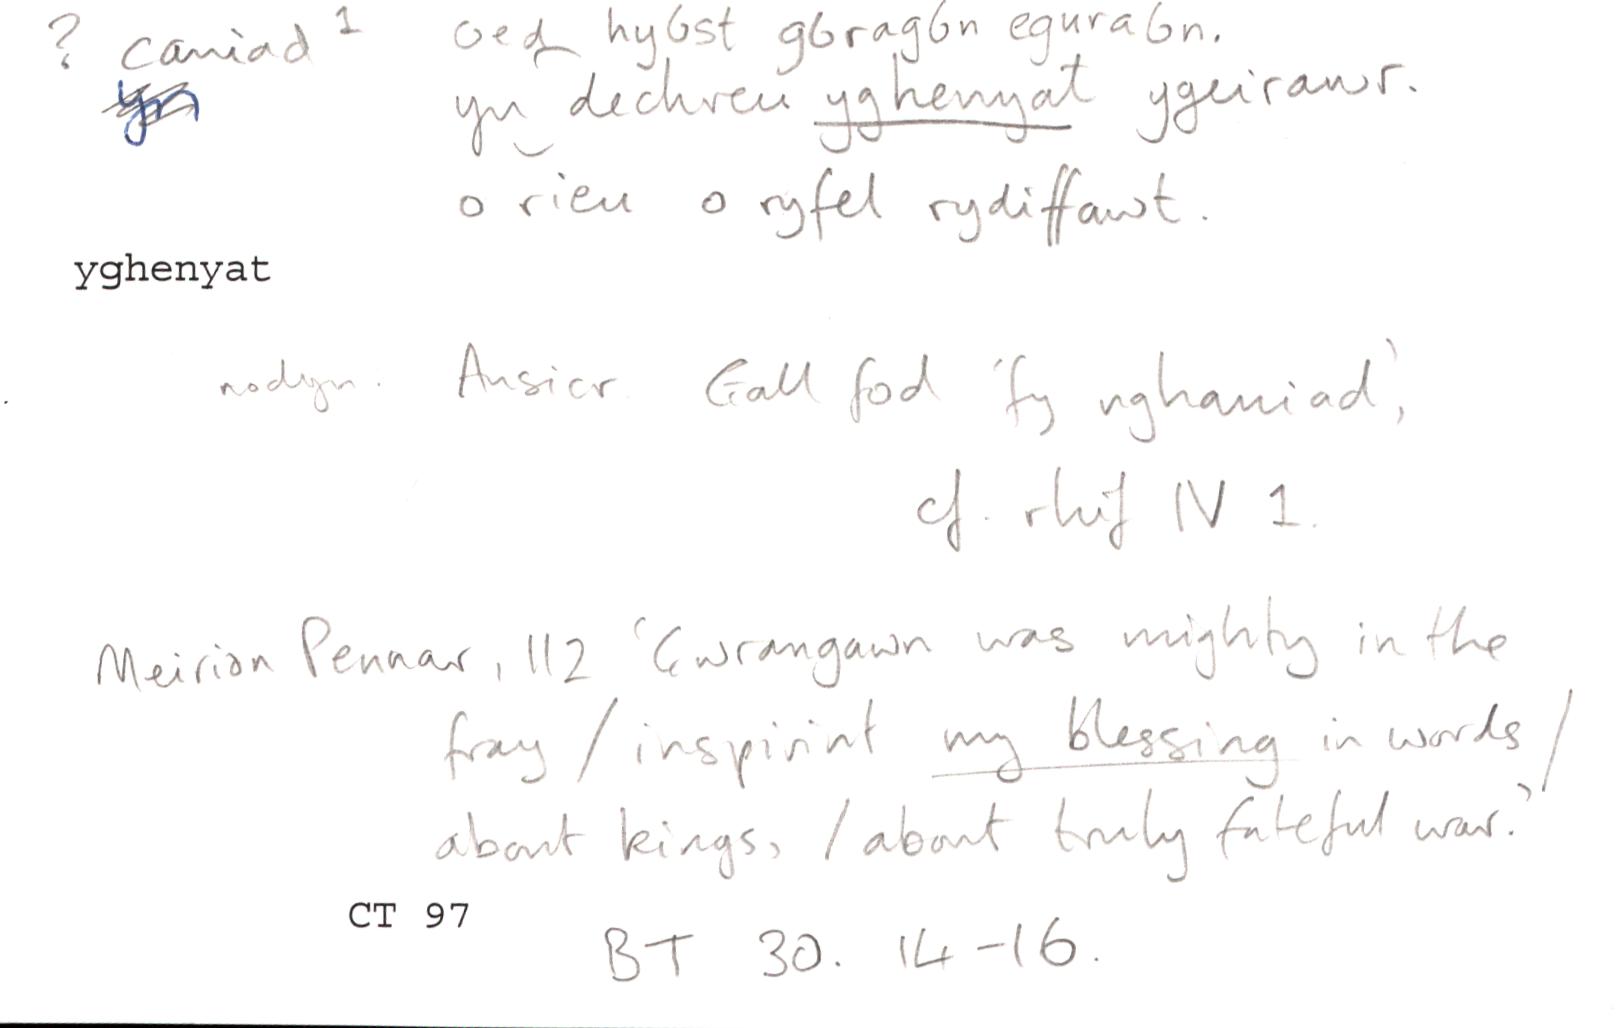 ? caniad 1 oed hyỽst gỽragỽn eguraỽn.
yn yn dechreu yghenyat ygeirawr.
o rieu o ryfel rydiffawt.
yghenyat
nodyn. Ansicr. Gall fod 'fy nghaniad',
cf. rhif IV 1.
Meirion Pennar, 112 'Gwrangawn was mighty in the
fray / inspirint my blessing in words /
about kings, / about truly fateful war.'
CT 97
BT 30. 14-16.